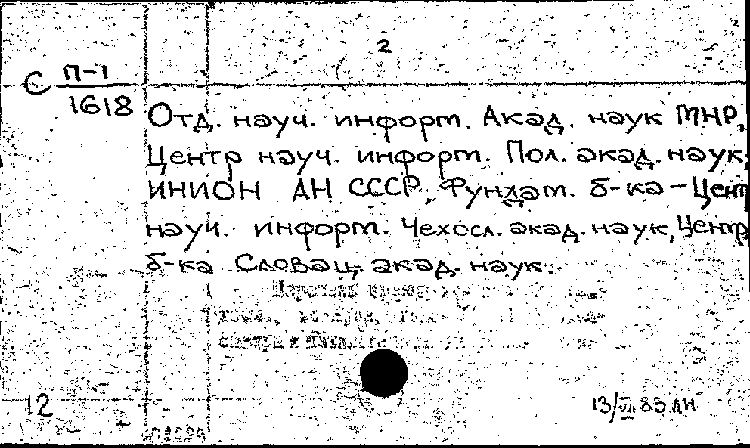 2
С П-1
1618
Отд. науч. информ. Акад. наук МНР,
Центр науч. информ. Пол. акад. наук,
ИНИОН АН СССР, Фундам. б-ка – Цент
науч. информ. Чехосл. акад. наук, Центр.
б-ка Словац. акад. наук.
12
13/VI 83 ЛН